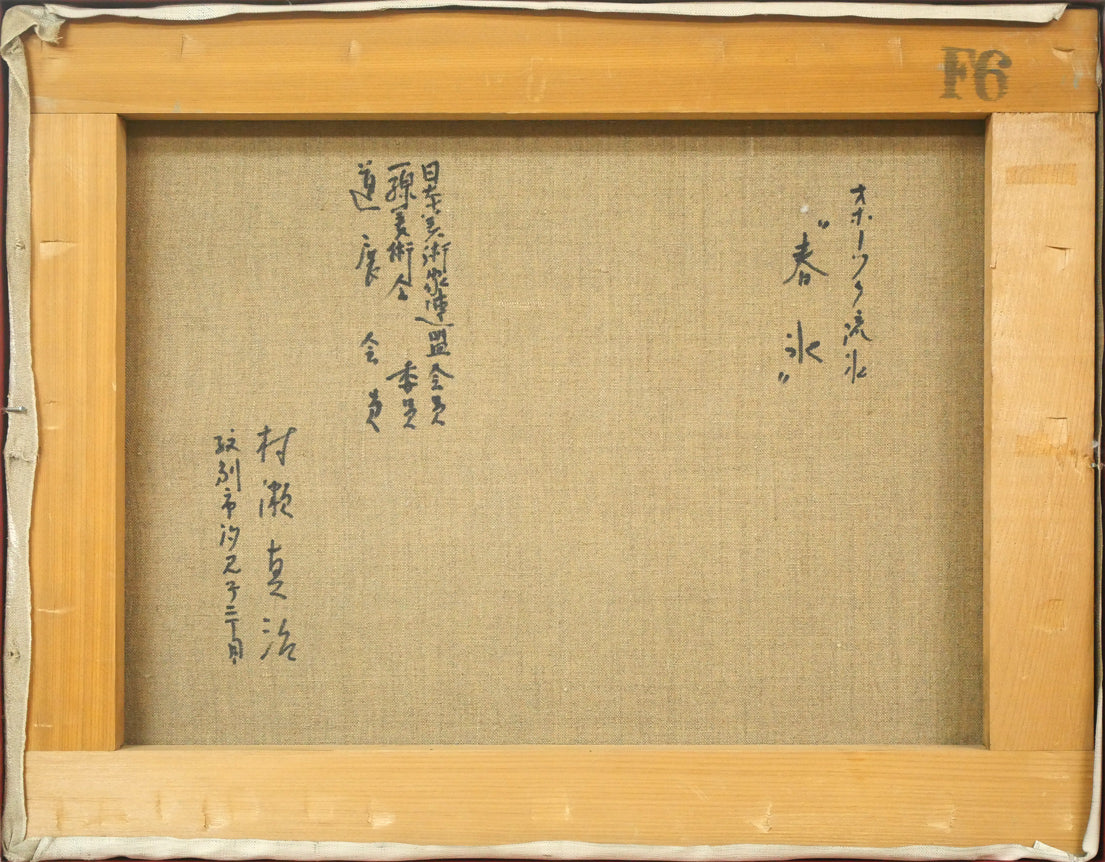 F6
オホーツク流氷
"春氷"
日本美術家連盟会員
一線美術会 委員
道展 会員
村瀬真治
紋別市汐見町二丁目